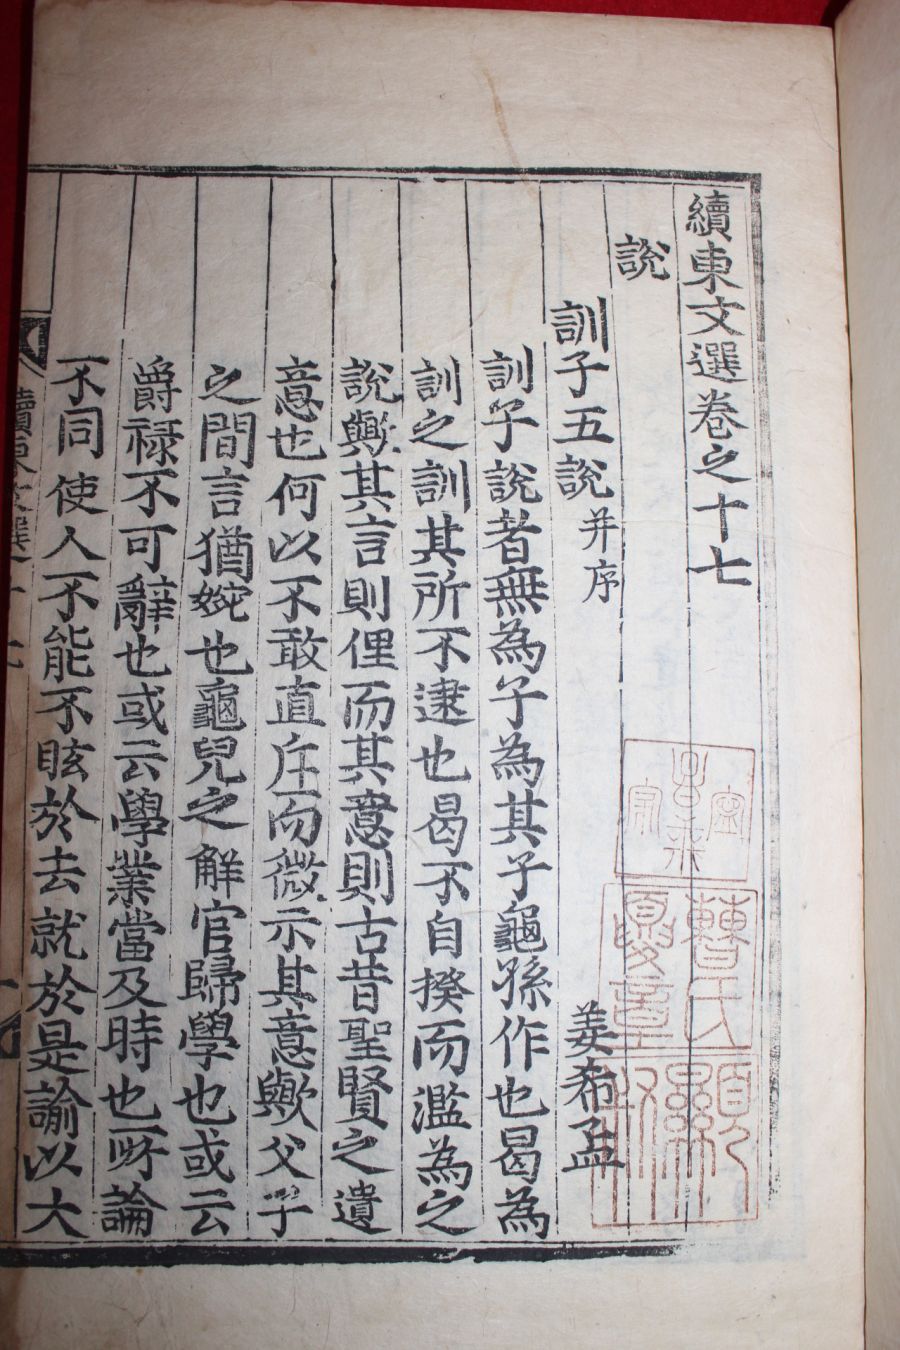 續東文選卷之十七
說
訓子五說 并序 姜希孟
訓子說者無為子為其子龜孫作也曷為
訓之訓其所不逮也曷不自揆而濫為之
說歟其言則俚而其意則古昔聖賢之遺
意也何以不敢直斥而微示其意歟父子
之間言猶婉也龜兒之解官歸學也或云
爵祿不可辭也或云學業當及時也所論
不同使人不能不眩於去就於是諭以大
續東文選